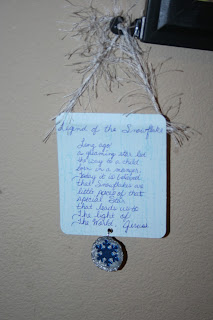 Legend of the Snowflake
Long ago
a gleaming star led
the way to a child
born in a manger.
Today it is believed
that snowflakes are
little pieces of that
special star
that leads us to
The Light of
The World, Jesus